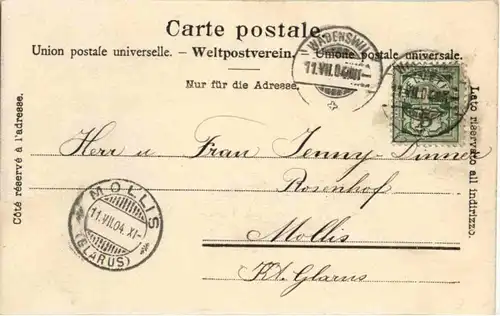 Carte postale.
Union postale universelle. – Weltpostverein. – Unione postale universale.
Nur für die Adresse.
WÄDENSWIL
11.VII.04.XI–
11.VII.04
Côté réservé à l'adresse.
Lato riservato all indirizzo.
Herr u. Frau Jenny-
Rosenhof
Mollis
Kt. Glarus
MOLLIS
11.VII.04. XI–
(GLARUS)